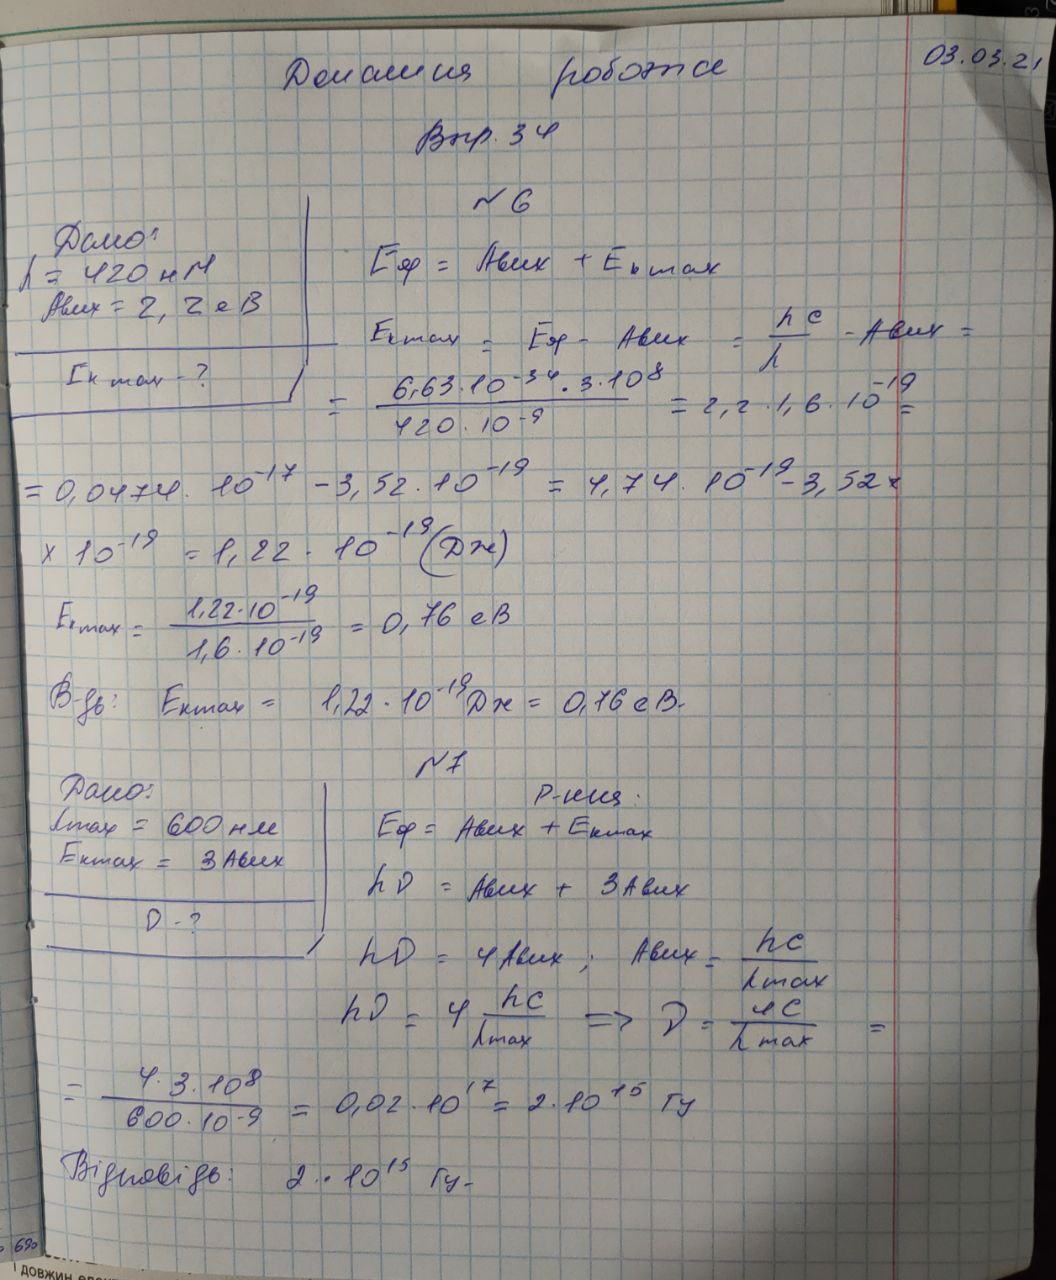 03.03.21
Домашня робота
Впр. 34
№6
Дано:
λ = 420 нм
Aвих = 2,2 еВ
Eк max - ?
Eф = Aвих + Eк max
Eк max = Eф - Aвих = hc/λ - Aвих =
= 6,63·10⁻³⁴·3·10⁸/420·10⁻⁹ = 2,2·1,6·10⁻¹⁹ =
= 0,0474·10⁻¹⁷ - 3,52·10⁻¹⁹ = 4,74·10⁻¹⁹ - 3,52 ×
× 10⁻¹⁹ = 1,22·10⁻¹⁹ (Дж)
Eк max = 1,22·10⁻¹⁹/1,6·10⁻¹⁹ = 0,76 еВ
В-дь: Eк max = 1,22·10⁻¹⁹ Дж = 0,76 еВ.
№7
Дано:
λmax = 600 нм
Eк max = 3Aвих
ν - ?
Р-ння:
Eф = Aвих + Eк max
hν = Aвих + 3Aвих
hν = 4Aвих; Aвих = hc/λmax
hν = 4 hc/λmax => ν = 4c/λmax =
= 4·3·10⁸/600·10⁻⁹ = 0,02·10¹⁷ = 2·10¹⁵ Гц
Відповідь: 2·10¹⁵ Гц.
690
довжин